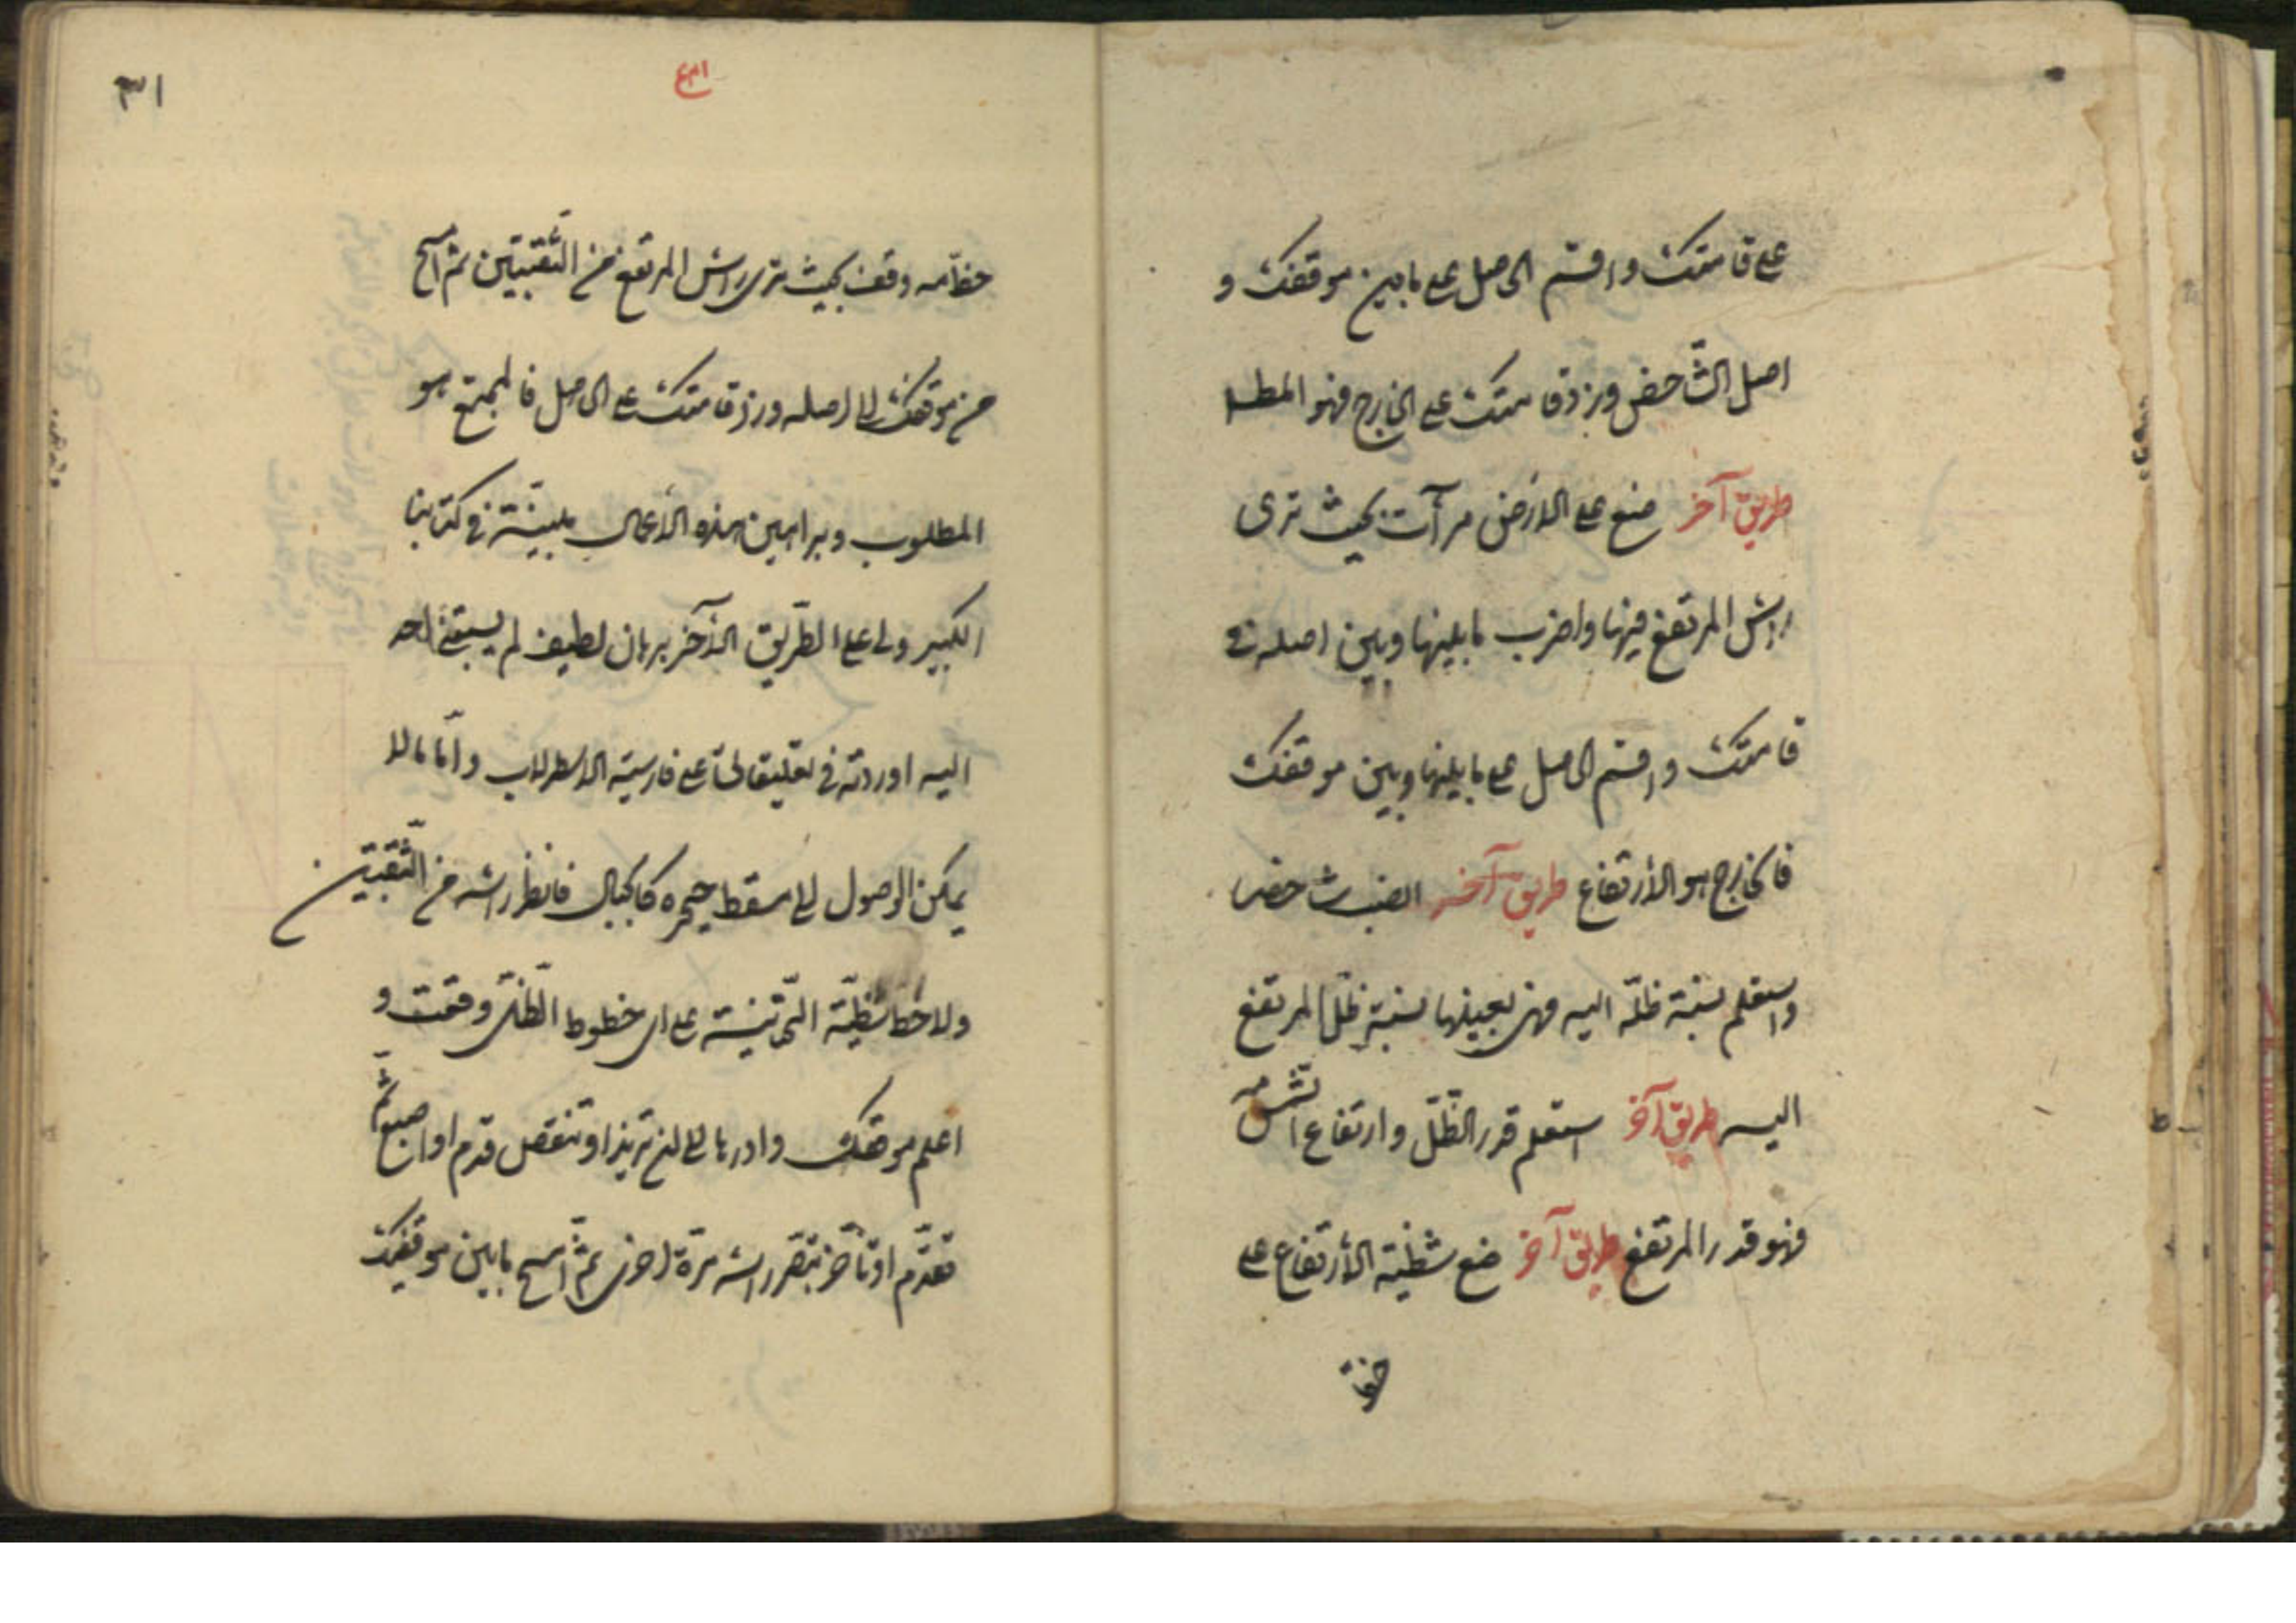 على قامتك واقسم الحاصل على ما بين موقفك و
اصل الشاخص وزد قامتك على الخارج فهو المطلوب
طريق آخر ضع على الأرض مرآت بحيث ترى
راس المرتفع فيها واضرب ما بينها وبين اصله في
قامتك واقسم الحاصل على ما بينها وبين موقفك
فالخارج هو الأرتفاع طريق آخر انصب شاخصا
واستعلم نسبة ظلّه اليه فهى بعينها نسبة ظلّ المرتفع
اليه طريق آخر استعلم قدر الظّلّ وارتفاع الشّمس مه
فهو قدر المرتفع طريق آخر ضع شظيّة الأرتفاع على
خط مه
٣١
خط مه وقف بحيث ترى راس المرتفع من الثّقبتين ثم امسح
من موقفك الى اصله وزد قامتك على الحاصل فالمجتمع هو
المطلوب وبراهين هذه الأعمال مبيّنة في كتابنا
الكبير ولى على الطّريق الأخر برهان لطيف لم يسبقنى احد
اليه اوردته في تعليقاتى على فارسيّة الاسطرلاب وامّا ما لا
يمكن الوصول الى مسقط حجره كالجبال فانظر راسه من الثّقبتين
ولاحظ الشّظيّة التّحتانيّة على اى خطوط الظّلّ وقعت و
اعلم موقفك وادرها الى ان تزيد او تنقص قدم او اصبع ثم
تقدّم او تأخّر تبصر راسه مرّة اخرى ثمّ امسح ما بين موقفيك